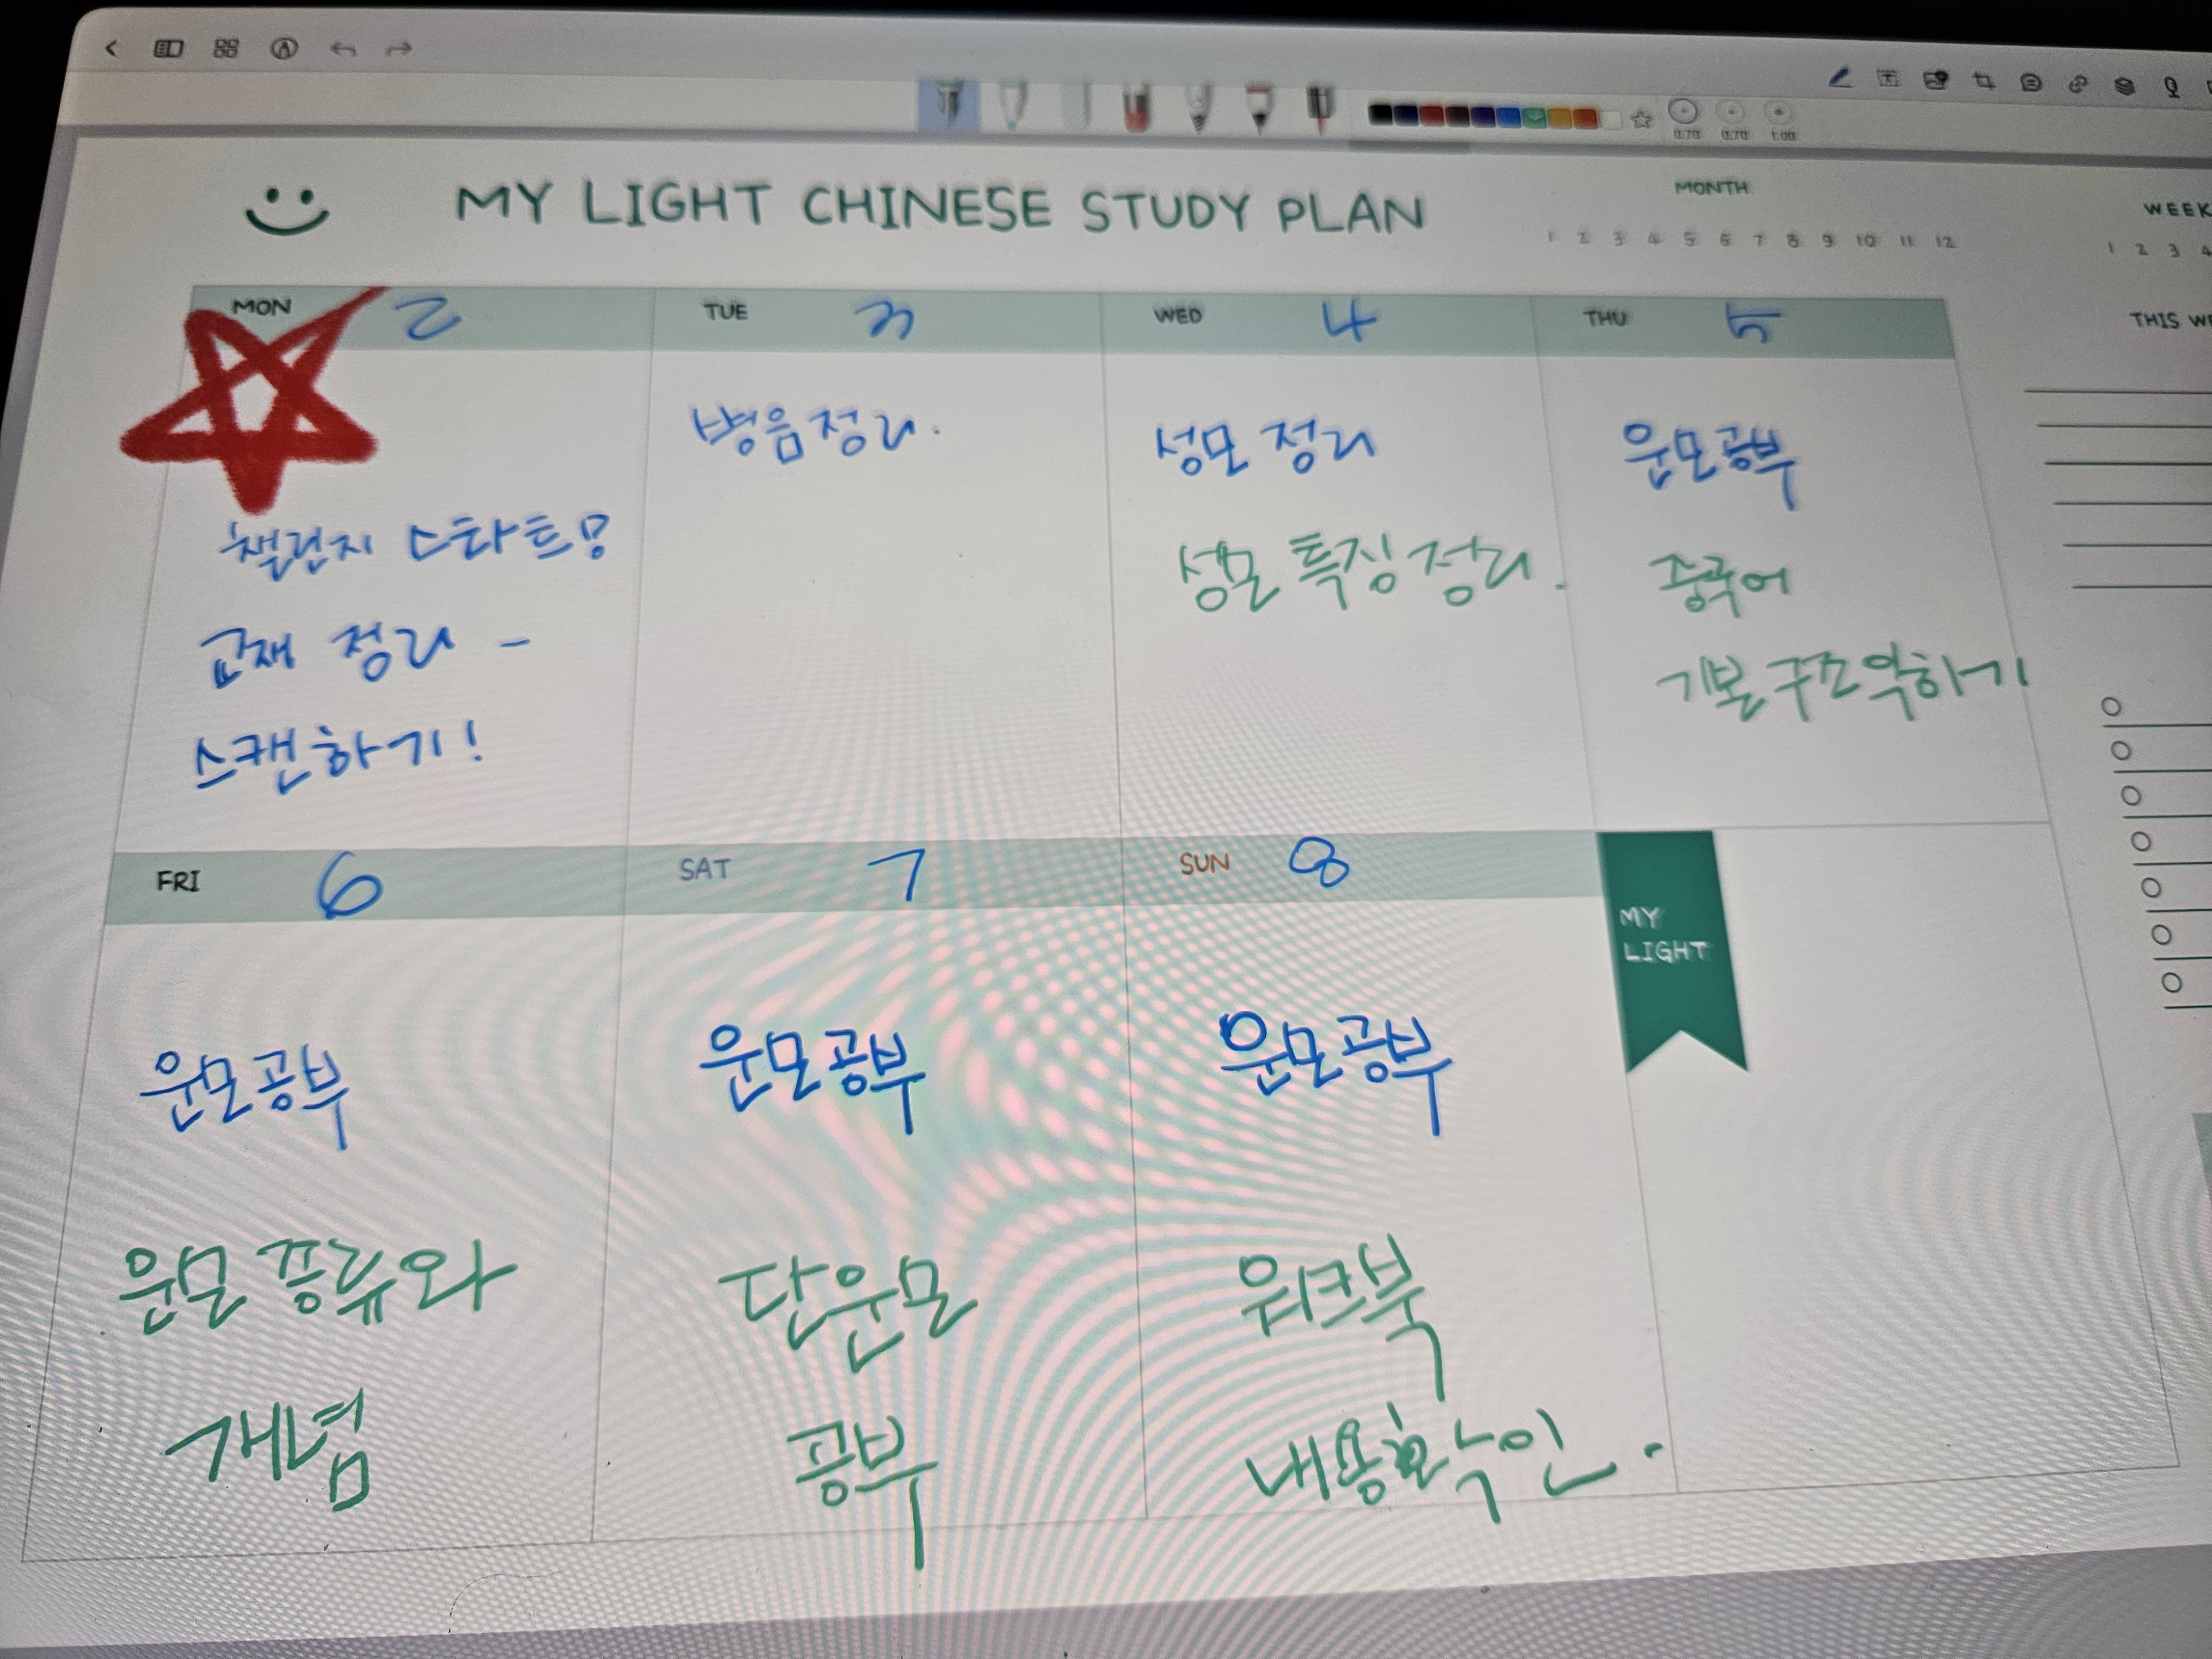 MY LIGHT CHINESE STUDY PLAN
MONTH
1 2 3 4 5 6 7 8 9 10 11 12
WEEK
1 2 3 4
0.70 0.70 1.00
MON 2
챌린지 스타트!
교재 정리 -
스캔하기!
TUE 3
병음정리.
WED 4
성모 정리
성모 특징 정리.
THU 5
운모공부
중국어
기본구조익하기
THIS WE
FRI 6
운모공부
운모 종류와
개념
SAT 7
운모공부
단운모
공부
SUN 8
운모공부
워크북
내용확인.
MY
LIGHT